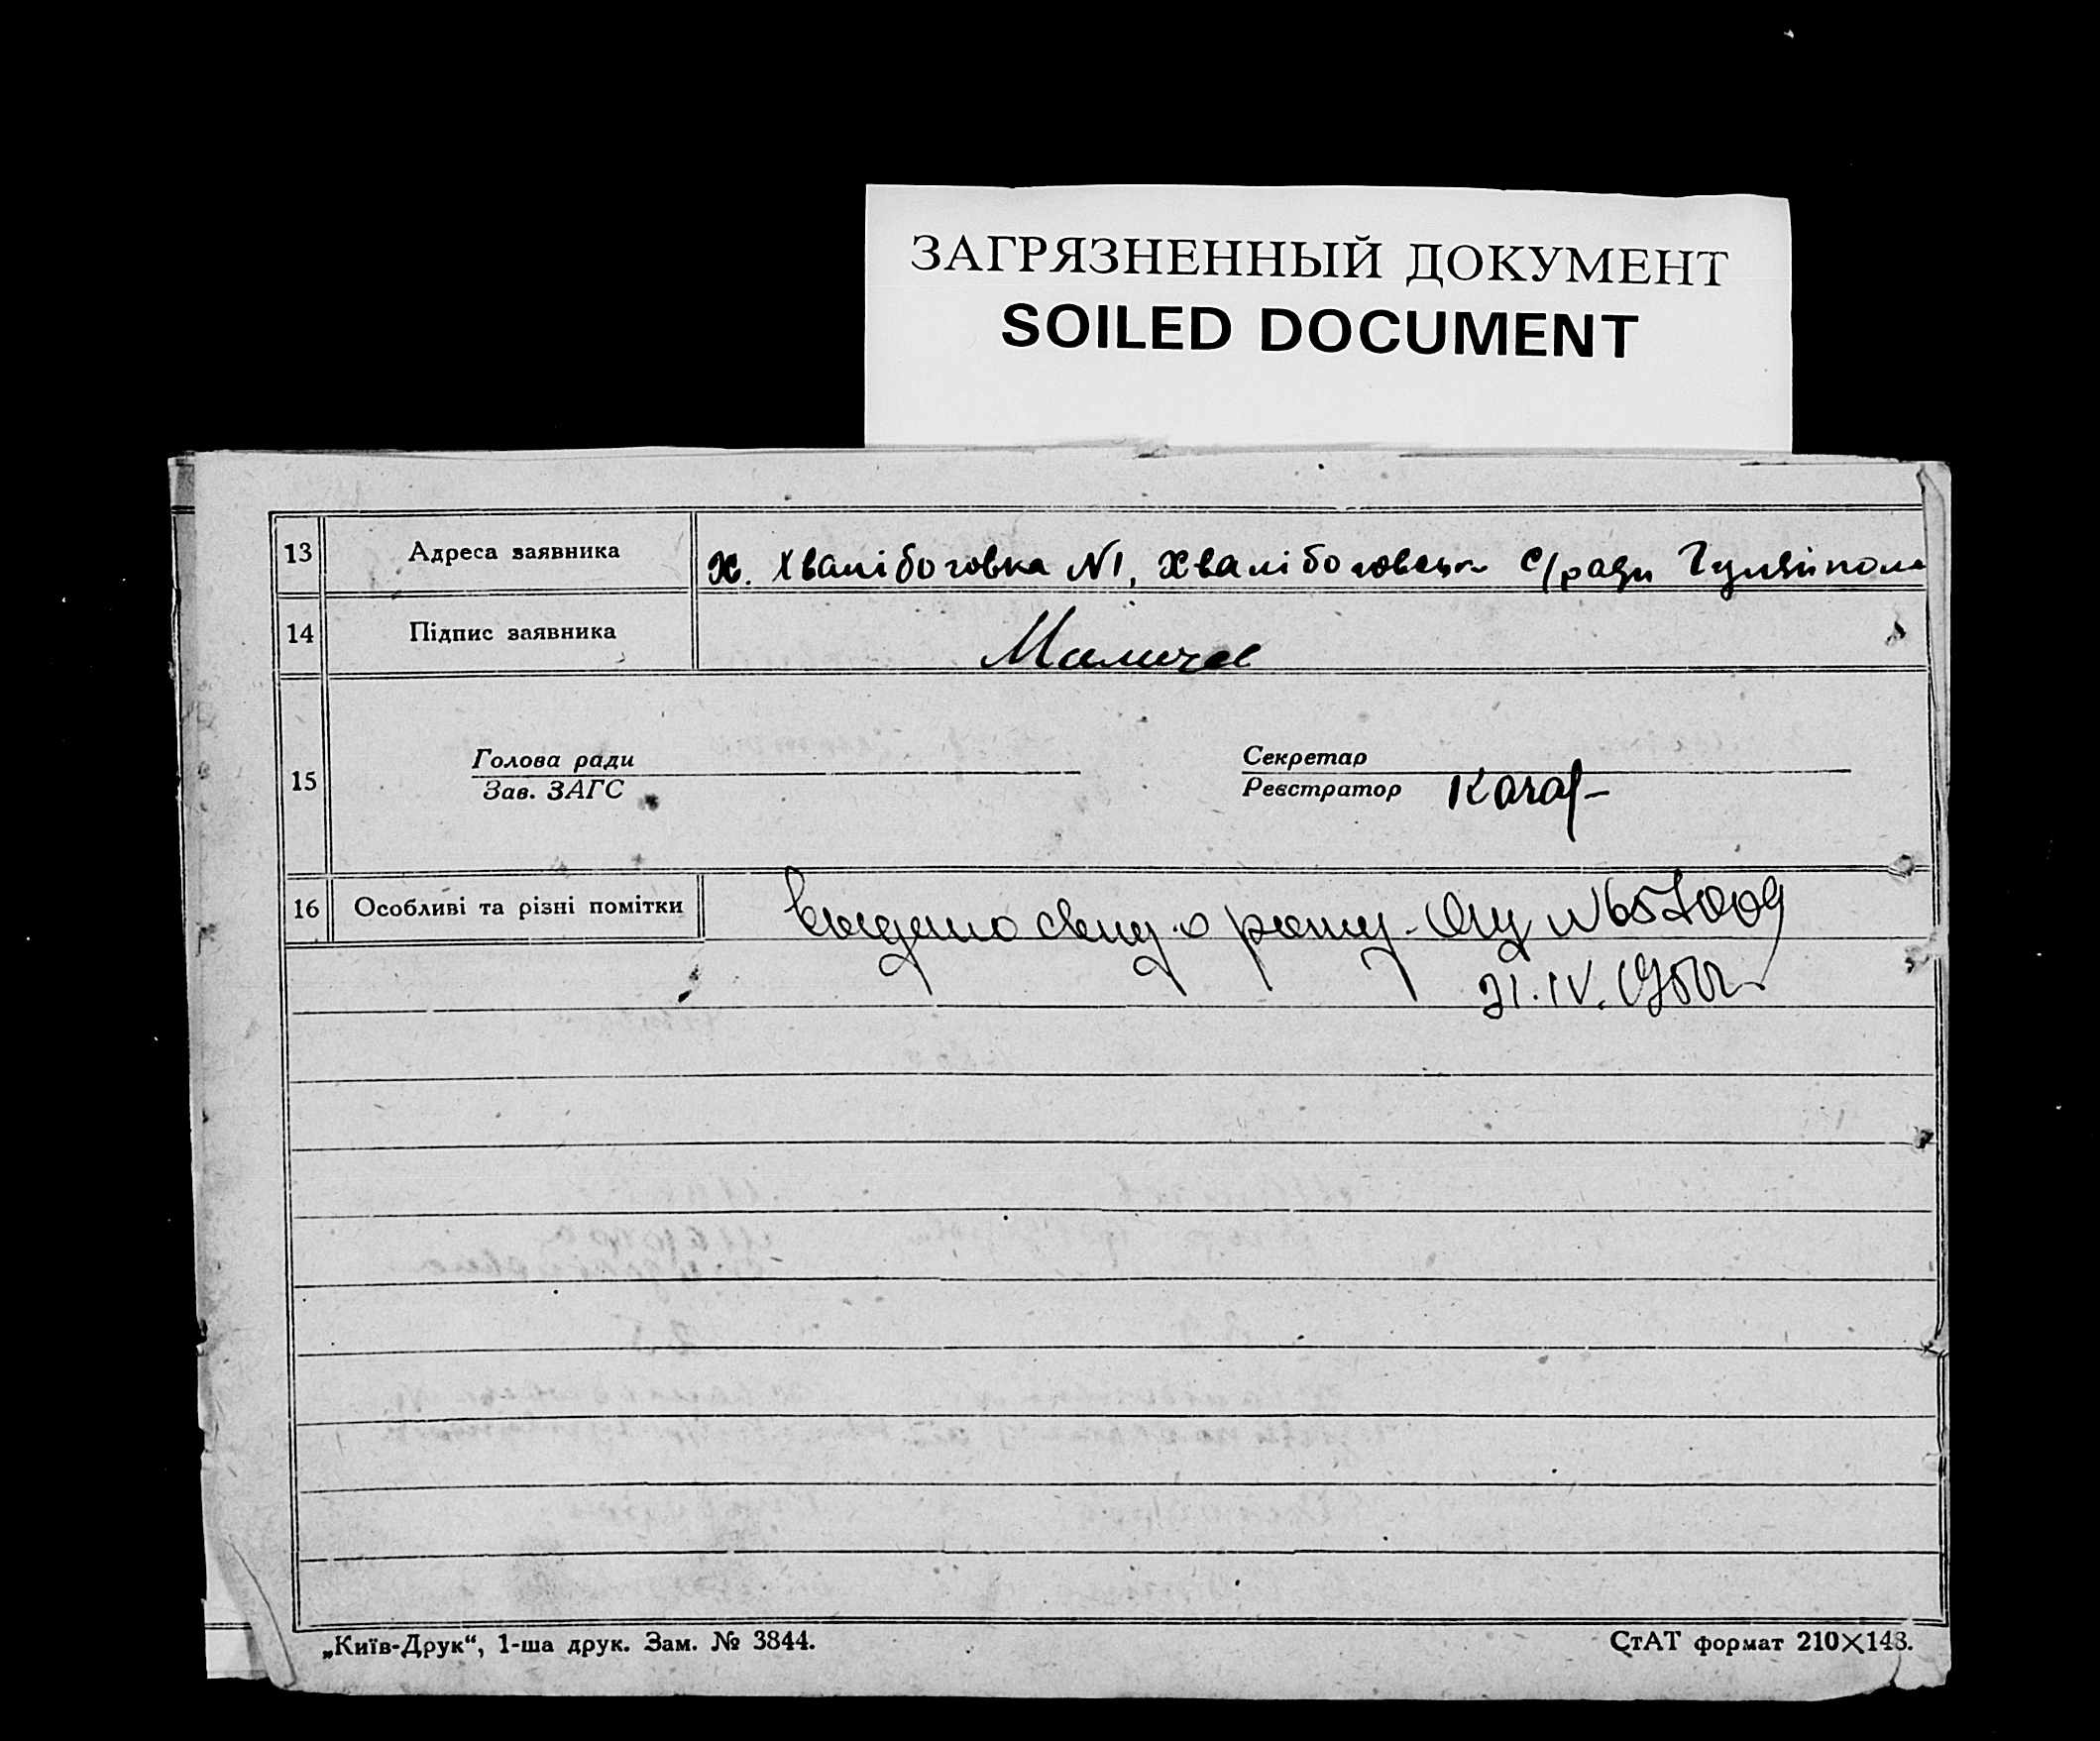 ЗАГРЯЗНЕННЫЙ ДОКУМЕНТ
SOILED DOCUMENT
13 Адреса заявника х. Хвалібоговка №1, Хвалібоговськ с/ради Гуляйполь
14 Підпис заявника
15 Голова ради Секретар
Зав. ЗАГС Реєстратор
16 Особливі та різні помітки выдано о рожд. №657009
21.IV.1950г
„Київ-Друк“, 1-ша друк. Зам. № 3844. СтАТ формат 210×148.